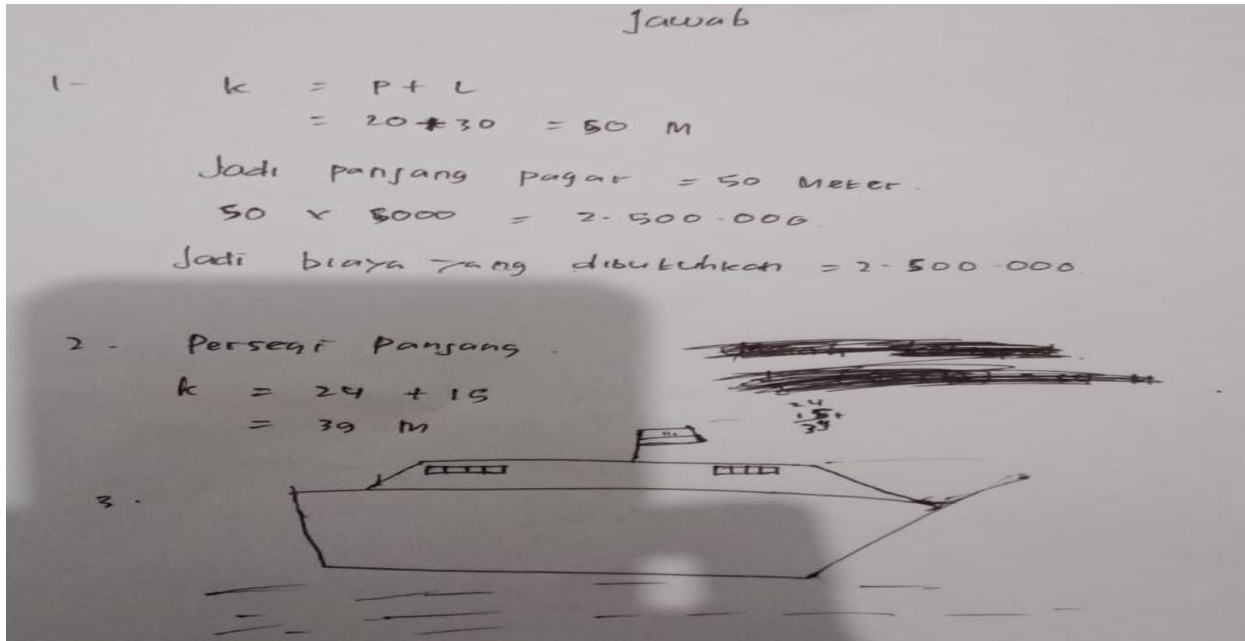 Jawab
1- k = P + L
= 20 + 30 = 50 M
Jadi panjang pagar = 50 Meter.
50 x 5000 = 2.500.000
Jadi biaya yang dibutuhkan = 2.500.000
2. Persegi Panjang.
k = 24 + 15
= 39 M
24
15 +
39
3.